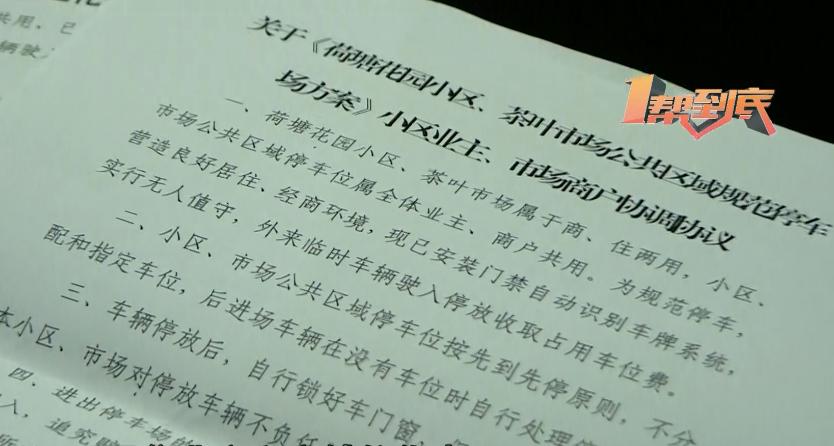 关于《荷塘花园小区、茶叶市场公共区域规范停车
场方案》小区业主、市场商户协调协议
一、荷塘花园小区、茶叶市场属于商、住两用,小区、
市场公共区域停车位属全体业主、商户共用。为规范停车,
营造良好居住、经商环境,现已安装门禁自动识别车牌系统,
实行无人值守,外来临时车辆驶入停放收取占用车位费。
二、小区、市场公共区域停车位按先到先停原则,不分
配和指定车位,后进场车辆在没有车位时自行处理
三、车辆停放后,自行锁好车门窗,
本小区、市场对停放车辆不负任
四、进出停车场的
入,追究
共用、已
辆驶
1帮到底